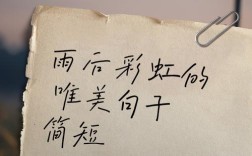 雨后彩虹的
唯美句子
简短